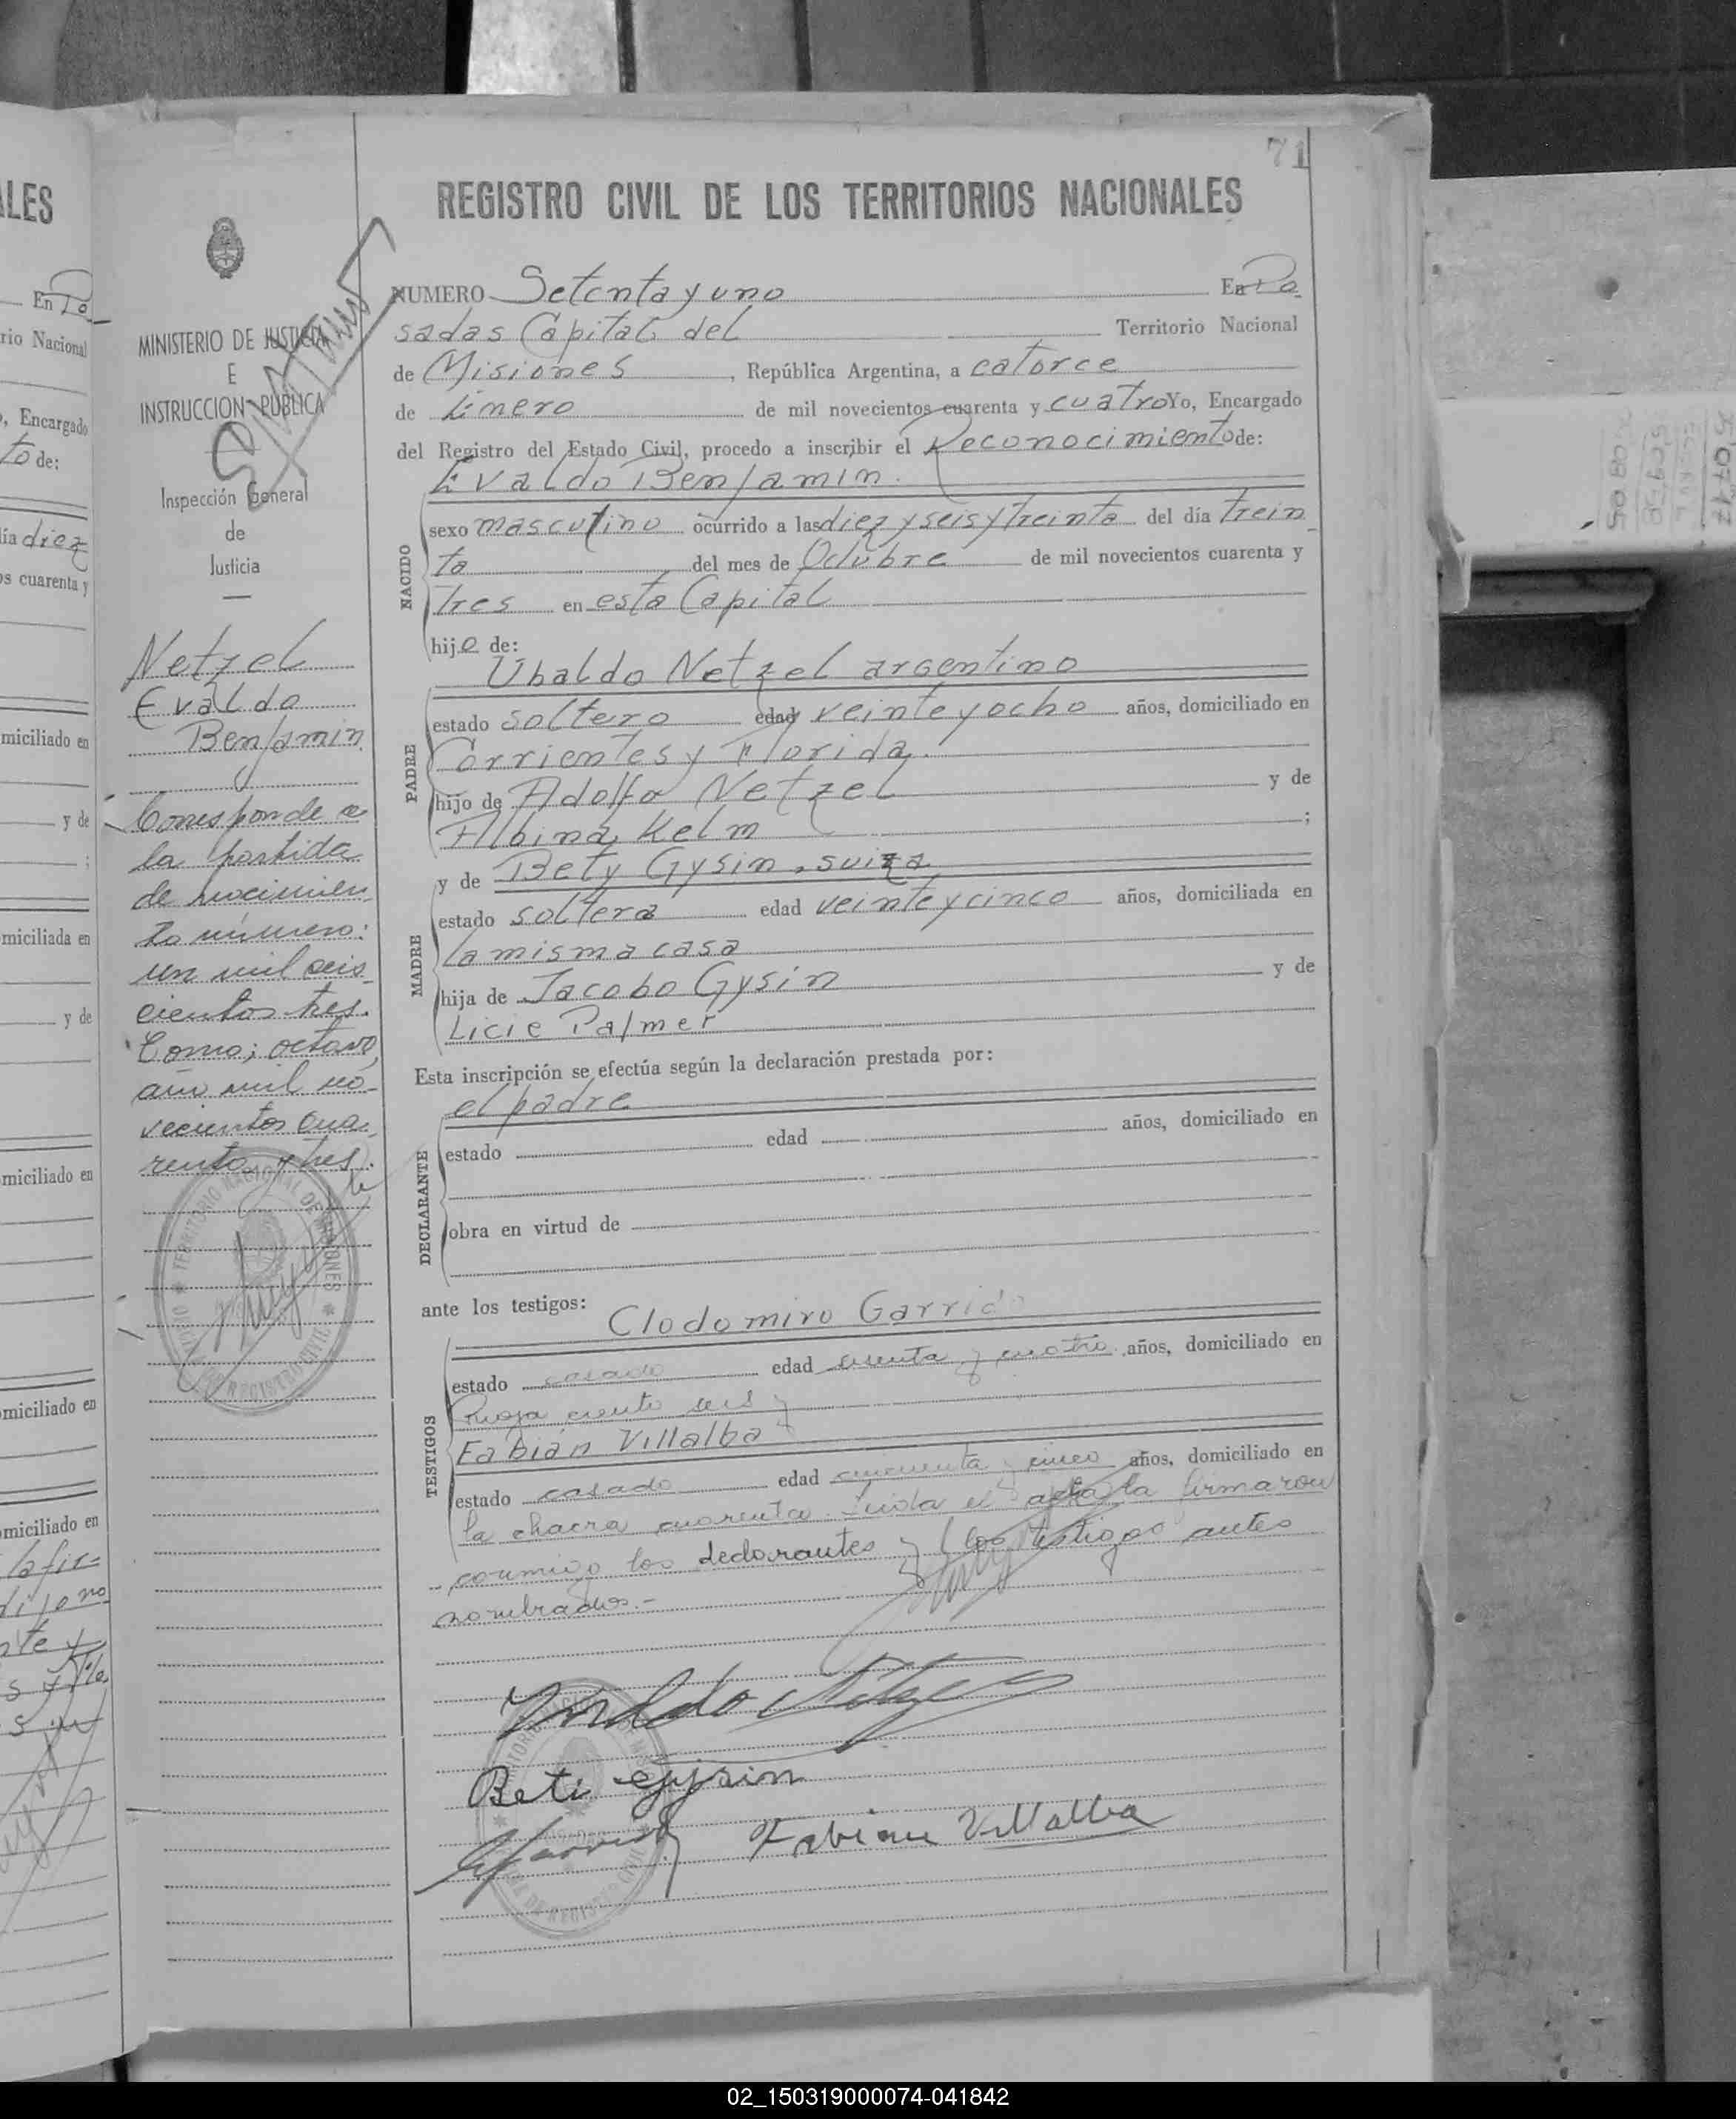 71
REGISTRO CIVIL DE LOS TERRITORIOS NACIONALES
NUMERO Setenta y uno En Po
sadas Capital del Territorio Nacional
de Misiones, República Argentina, a catorce
de Enero de mil novecientos cuarenta y cuatro Yo, Encargado
del Registro del Estado Civil, procedo a inscribir el Reconocimiento de:
Evaldo Benjamin.
NACIDO
sexo masculino ocurrido a las diez y seis y treinta del día trein
ta del mes de Octubre de mil novecientos cuarenta y
tres en esta Capital
hijo de:
Ubaldo Netzel argentino
PADRE
estado soltero edad veinte y ocho años, domiciliado en
Corrientes y Florida.
hijo de Adolfo Netzel y de
Albina Kelm ;
y de Bety Gysin, suiza
MADRE
estado soltera edad veinte y cinco años, domiciliada en
la misma casa
hija de Jacobo Gysin y de
Licie Palmer
Esta inscripción se efectúa según la declaración prestada por:
el padre
DECLARANTE
estado edad años, domiciliado en
obra en virtud de
ante los testigos:
Clodomiro Garrido
TESTIGOS
estado casado edad y cuatro años, domiciliado en
Rioja ciento seis y
Fabián Villalba
estado casado edad cincuenta y cinco años, domiciliado en
la chacra cuarenta. Leida el acta la firmaron
conmigo los declarantes y los testigos antes
nombrados.-
Beti Gysin
Garrido Fabian Villalba
MINISTERIO DE JUSTICIA
E
INSTRUCCION PUBLICA
Inspección General
de
Justicia
Netzel
Evaldo
Benjamin
Corresponde a
la partida
de nacimien
to número:
un mil seis
cientos tres.
Tomo; octavo,
año mil no-
vecientos cua-
renta y tres.
TERRITORIO NACIONAL DE MISIONES
REGISTRO CIVIL
ALES
En Po
rio Nacional
o, Encargado
to de:
ía diez
os cuarenta y
miciliado en
y de
;
miciliada en
y de
miciliado en
miciliado en
miciliado en
la fir-
02_150319000074-041842